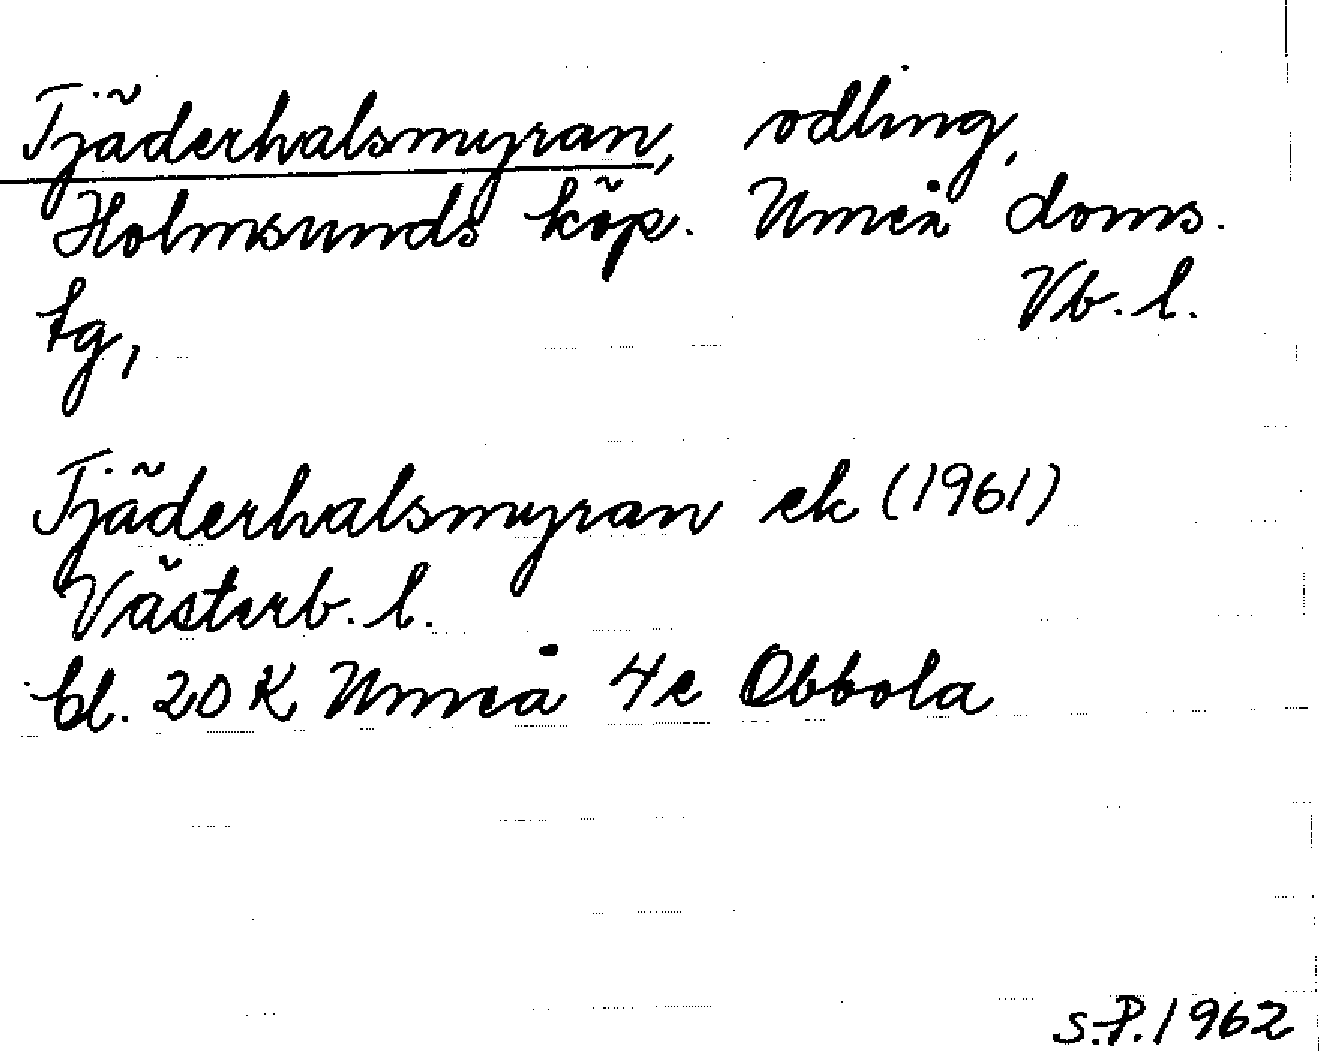 Tjäderhalsmyran, odling,
Holmsunds köp. Umeå doms.
tg, Vb. l.
Tjäderhalsmyran ek (1961)
Västerb. l.
bl. 20 K Umeå 4c Obbola
S.P. 1962